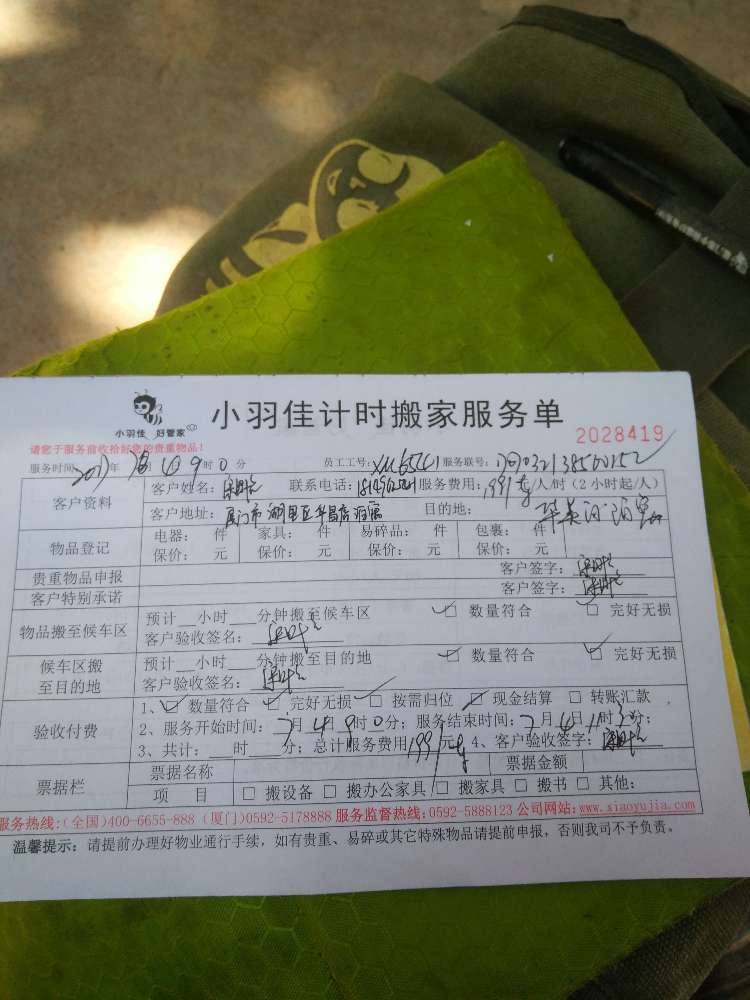 小羽佳 好管家
小羽佳计时搬家服务单
请您于服务前收拾好您的贵重物品！
2028419
服务时间: 2017年 月 日 9时0分 员工工号: 服务联号:
客户资料
客户姓名: 联系电话: 服务费用: 199/车/人/时（2小时起/人）
客户地址: 厦门市湖里区 目的地:
物品登记
电器: 件 家具: 件 易碎品: 件 包裹: 件
保价: 元 保价: 元 保价: 元 保价: 元
贵重物品申报 客户签字:
客户特别承诺 客户签字:
物品搬至候车区
预计__小时___分钟搬至候车区 ☑ 数量符合 ☑ 完好无损
客户验收签名:
候车区搬至目的地
预计__小时___分钟搬至目的地 ☑ 数量符合 ☑ 完好无损
客户验收签名:
验收付费
1、☑ 数量符合 ☑ 完好无损 ☑ 按需归位 ☑ 现金结算 □ 转账汇款
2、服务开始时间: 7月4日9时0分; 服务结束时间: 7月4日11时 分;
3、共计: __时__分; 总计服务费用199/车元 4、客户验收签字:
票据栏
票据名称 票据金额
项 目 □ 搬设备 □ 搬办公家具 □ 搬家具 □ 搬书 □ 其他:
服务热线:(全国)400-6655-888 (厦门)0592-5178888 服务监督热线:0592-5888123 公司网站: www.xiaoyujia.com
温馨提示: 请提前办理好物业通行手续, 如有贵重、易碎或其它特殊物品请提前申报, 否则我司不予负责。